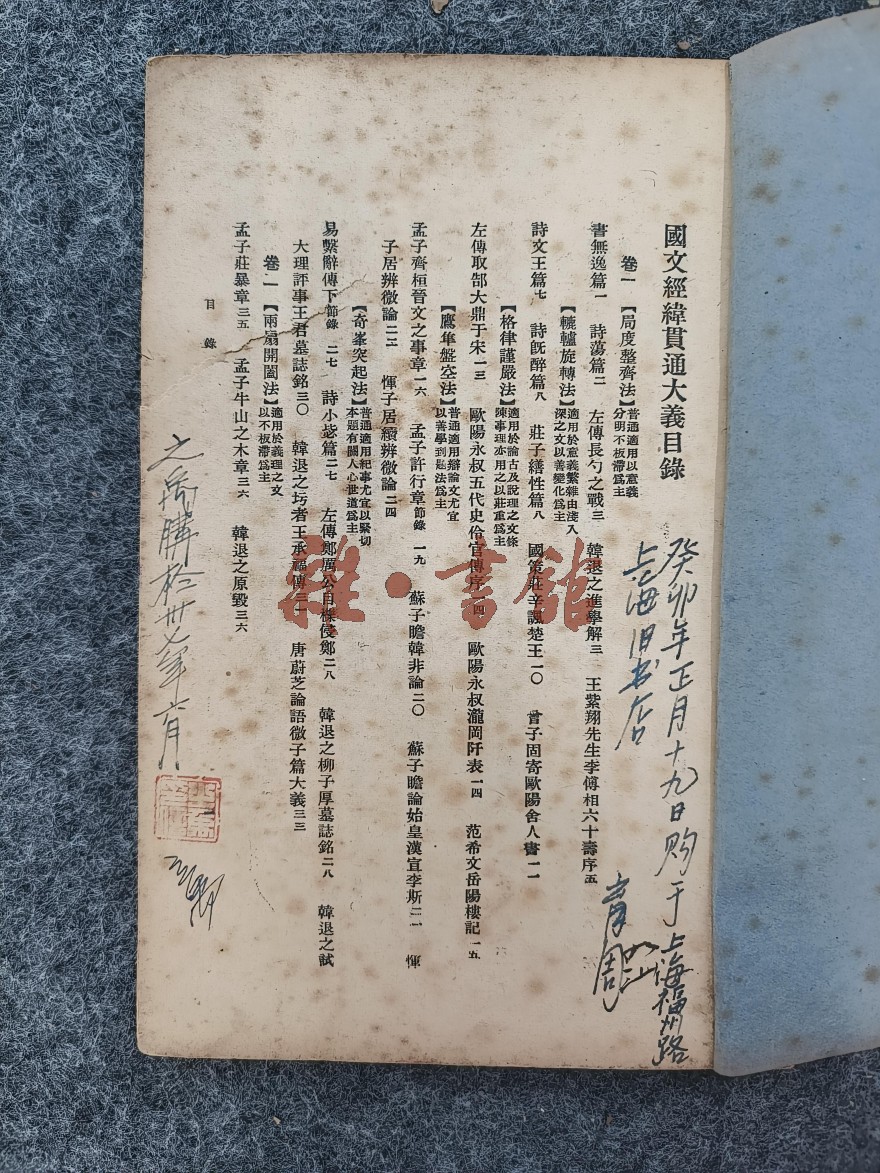 國文經緯貫通大義目錄
卷一【局度整齊法】普通適用以意義分明不板滯爲主
書無逸篇一 詩蕩篇二 左傳長勺之戰三 韓退之進學解三 王紫翔先生李傅相六十壽序五
【轆轤旋轉法】適用於意義繁雜由淺入深之文以善變化爲主
詩文王篇七 詩旣醉篇八 莊子繕性篇八 國策莊辛諷楚王一〇 曾子固寄歐陽舍人書一一
【格律謹嚴法】適用於論古及說理之文條陳事理亦用之以莊重爲主
左傳取郜大鼎于宋一三 歐陽永叔五代史伶官傳序一四 歐陽永叔瀧岡阡表一四 范希文岳陽樓記一五
【鷹隼盤空法】普通適用辯論文尤宜以善學到題法爲主
孟子齊桓晉文之事章一六 孟子許行章節錄 一九 蘇子瞻韓非論二〇 蘇子瞻論始皇漢宣李斯二一 惲
子居辨微論二三 惲子居續辨微論二四
【奇峯突起法】普通適用紀事尤宜以緊切本題有關人心世道爲主
易繫辭傳下節錄 二七 詩小毖篇二七 左傳鄭厲公自櫟侵鄭二八 韓退之柳子厚墓誌銘二八 韓退之試
大理評事王君墓誌銘三〇 韓退之圬者王承福傳三一 唐蔚芝論語微子篇大義三三
卷二【兩扇開闔法】適用於義理之文以不板滯爲主
孟子莊暴章三五 孟子牛山之木章三六 韓退之原毀三六
目錄
癸卯年正月十九日购于上海福州路
上海旧书店
雜·書館